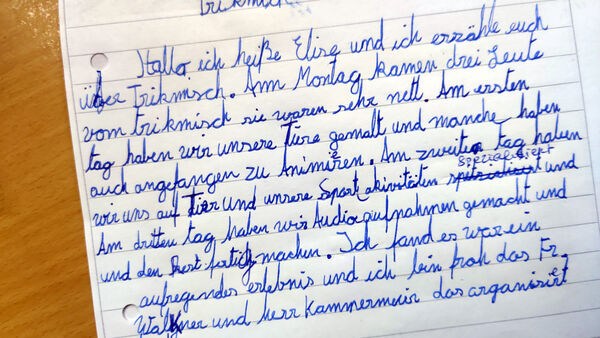 Trikmisch
Hallo ich heiße Elisa und ich erzähle euch
über Trikmisch. Amm Montag kamen drei Leute
vom trikmisch sie waren sehr nett. Am ersten
tag haben wir unsere Tiere gemalt und manche haben
auch angefangen zu Animieren. Am zweiten tag haben
wir uns auf Tier und unsere Sport akivitäten spezialisiert und
Am dritten tag haben wir Audioaufnahmen gemacht und
und den Rest fertig machen. Ich fand es war ein
aufregendes erlebnis und ich bin froh das Fr.
und Herr Kammermeier das organisiert